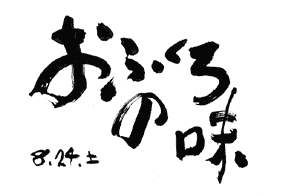 おふくろ
の味
8.24.土